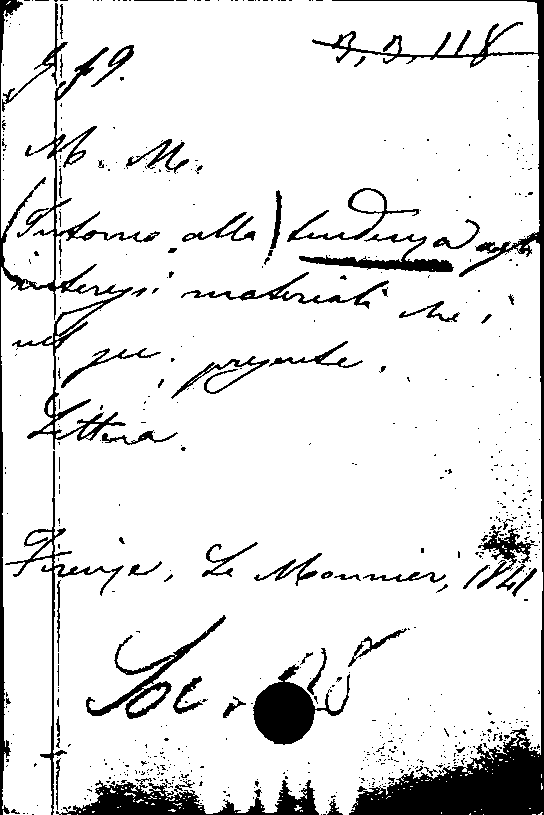 B, B, 118
M. M.
(Intorno alla) tendenza agli
interessi materiali che i
nel sec. presente.
Lettera.
Firenze, Le Monnier, 1841
Soc.